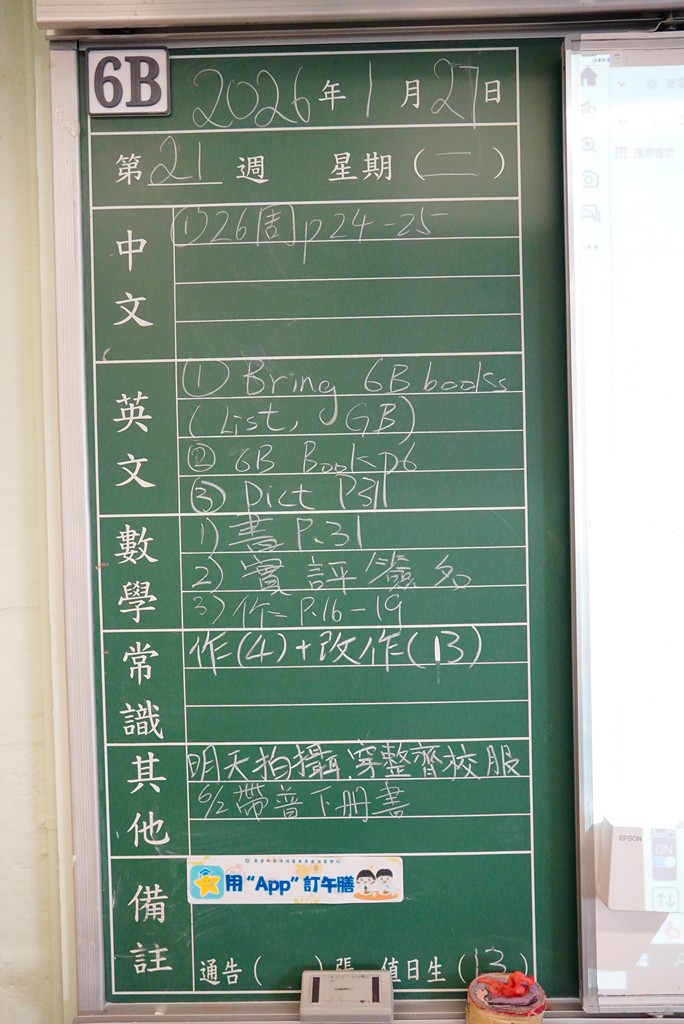 6B
2026年1月27日
第21週 星期(二)
中文
① 26周 p24-25
英文
① Bring 6B books
(List, GB)
② 6B Book p6
③ Dict P31
數學
1) 書 P.31
2) 實評簽名
3) 作= P.16-19
常識
作(4)+改作(13)
其他
明天拍攝,穿整齊校服
6/2 帶普下冊書
備註
用“App”訂午膳
通告( )張 值日生(13)
EPSON
ON